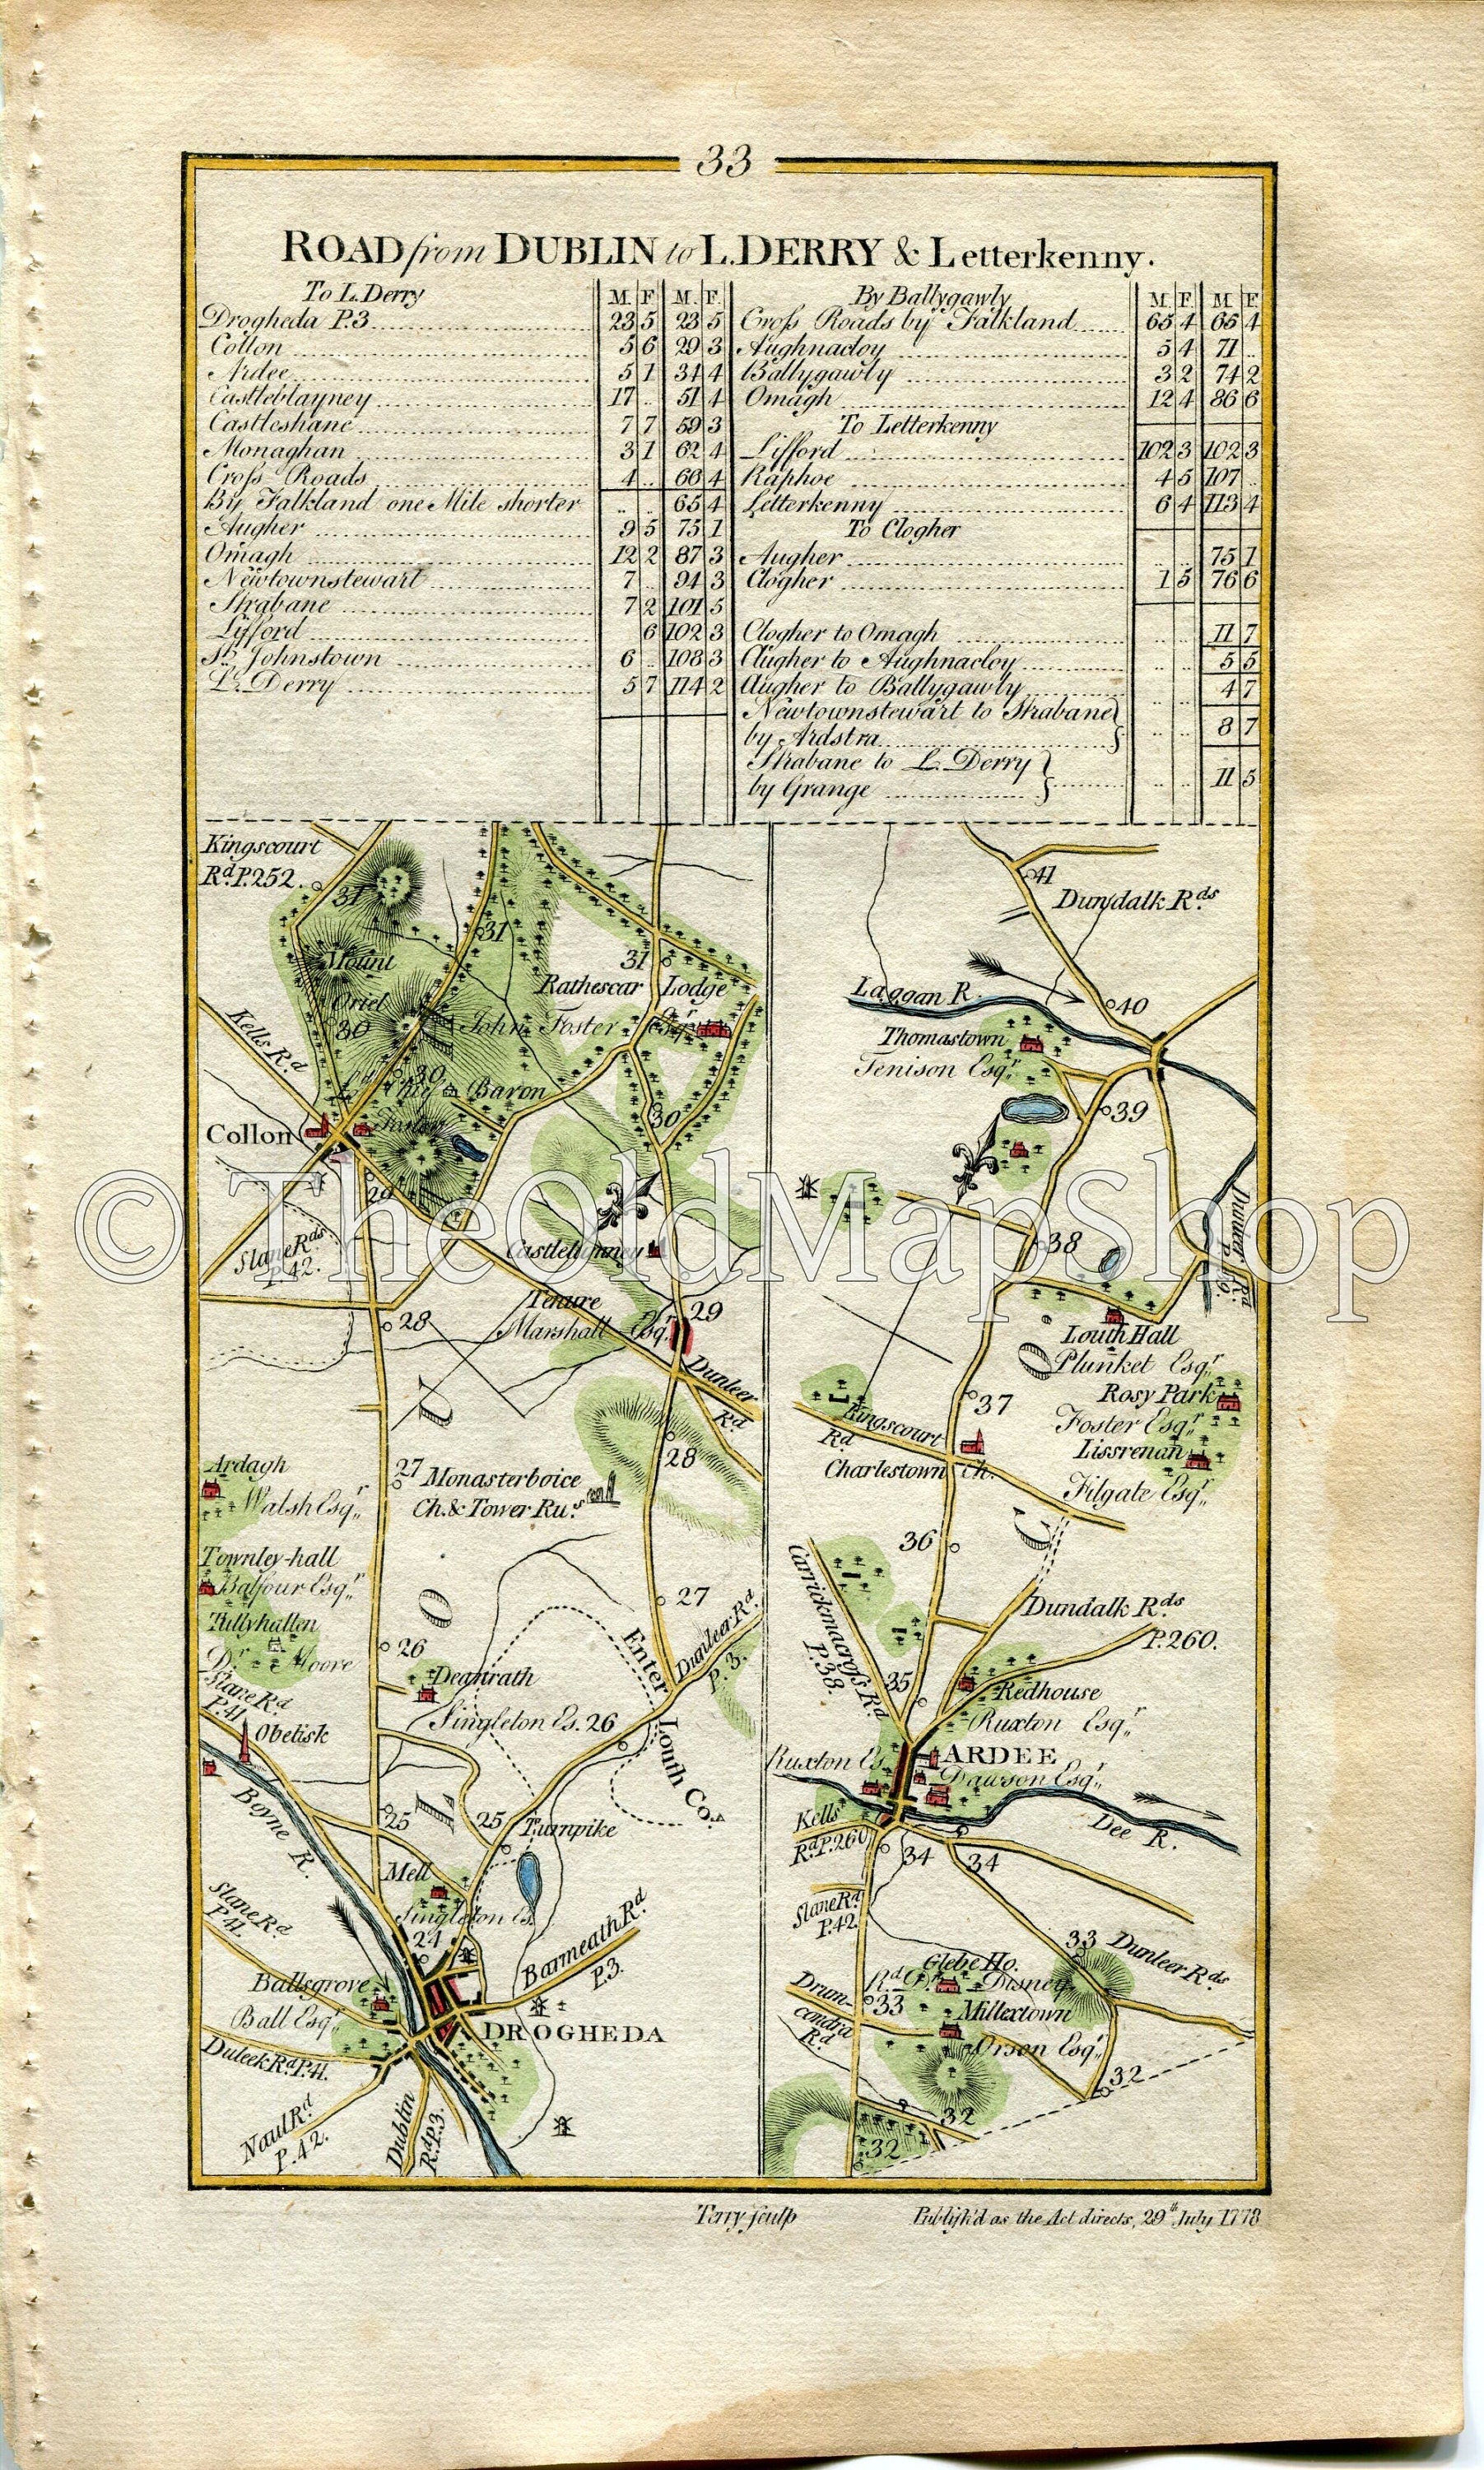 33
ROAD from DUBLIN to L.DERRY & Letterkenny.
To L. Derry M. F. M. F.
Drogheda P.3 23 5 23 5
Collon 5 6 29 3
Ardee 5 1 34 4
Castleblayney 17 .. 51 4
Castleshane 7 7 59 3
Monaghan 3 1 62 4
Croſs Roads 4 .. 66 4
By Falkland one Mile shorter .. .. 65 4
Augher 9 5 75 1
Omagh 12 2 87 3
Newtownstewart 7 .. 94 3
Strabane 7 2 101 5
Lifford 6 102 3
St. Johnstown 6 .. 108 3
L. Derry 5 7 114 2
By Ballygawly M. F. M. F.
Croſs Roads by Falkland 65 4 65 4
Aughnacloy 5 4 71 ..
Ballygawly 3 2 74 2
Omagh 12 4 86 6
To Letterkenny
Lifford 102 3 102 3
Raphoe 4 5 107 ..
Letterkenny 6 4 113 4
To Clogher
Augher .. .. 75 1
Clogher 1 5 76 6
Clogher to Omagh .. .. 11 7
Augher to Aughnacloy .. .. 5 5
Augher to Ballygawly .. .. 4 7
Newtownstewart to Strabane
by Ardstra .. .. 8 7
Strabane to L. Derry
by Grange .. .. 11 5
Kingscourt
Rd. P.252.
31
Mount
Oriel
30
31
30
Ld. Chief Baron
Foster
Kells Rd
Collon
29
Slane Rds
P.42.
31
Rathescar Lodge
John Foster Esqr.
30
Castlelumney
Tenure
Marshall Esqr.
29
28
Dunleer
Rd
28
L O U
27
Monasterboice
Ch. & Tower Rus.
Ardagh
Walsh Esqr.
Townley-hall
Balfour Esqr.
Tullyhallen
Dr. Moore
Slane Rd
P.41
26
Deanrath
Singleton Es.
26
27
Dunleer Rd
P. 3.
Enter Louth Co.
Obelisk
Boyne R.
25
25
Turnpike
Mell
Singleton Es.
24
Slane Rd
P.41.
Barmeath Rd
P.3.
Ballsgrove
Ball Esqr.
DROGHEDA
Duleek Rd P.41.
Naul Rd
P.42.
Dublin
Rd P.3.
41
Dundalk Rds.
Laggan R.
40
Thomastown
Tenison Esqr.
39
38
Louth Hall
Plunket Esqr.
Rosy Park
Foster Esqr.
Lissrenan
Filgate Esqr.
37
Kingscourt
Rd
Charlestown Ch.
C O.
36
Carrickmacroſs Rd
P.38.
Dundalk Rds.
P.260.
35
Redhouse
Ruxton Esqr.
Ruxton Es.
ARDEE
Dawson Esqr.
Dee R.
Kells
Rd P.260
34
34
Slane Rd
P.42
33
Dunleer Rds
Glebe Ho.
Rd. Dr. Disney
33
Drum-
condra
Rd.
Millextown
Orson Esqr.
32
32
32
© TheOldMapShop
Terry sculp
Publiſh'd as the Act directs, 29th July 1778